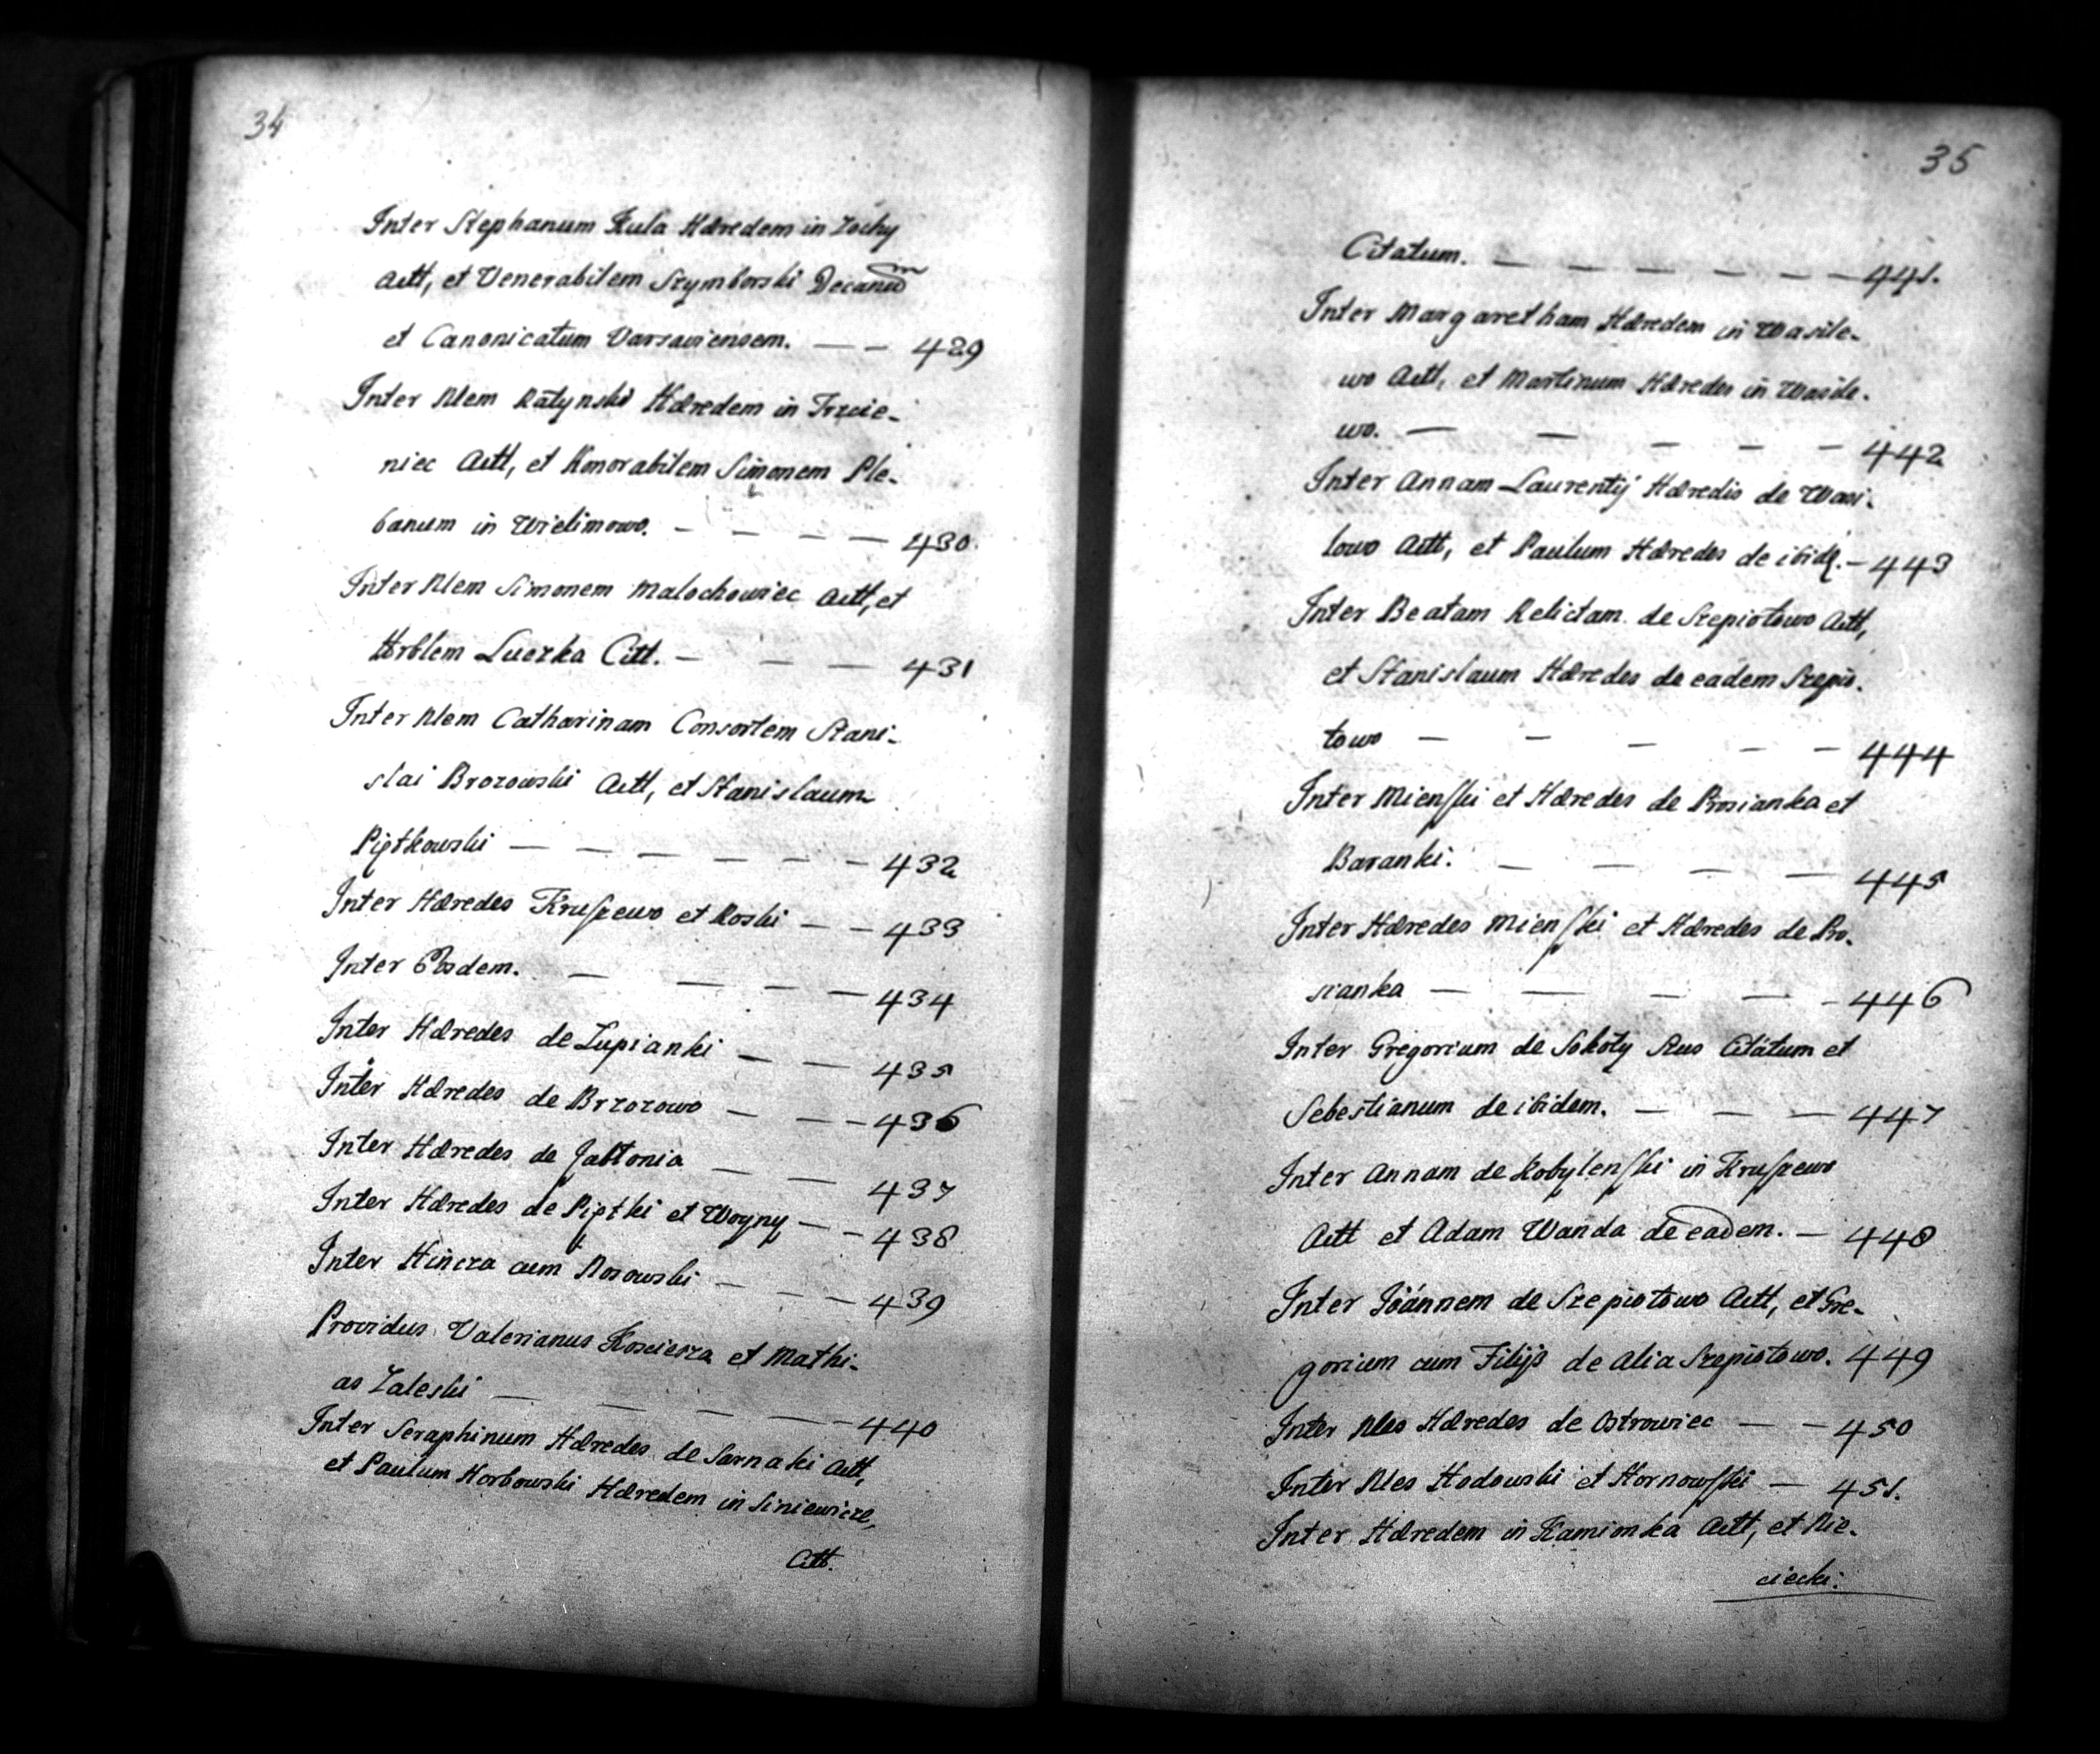 34
Inter Stephanum Kula Hæredem in Zochy
Actt, et Venerabilem Szymborski Decanum
et Canonicatum Varsaviensem. — — 429
Inter Nlem Ratynski Hæredem in Trzcie-
niec Actt, et Honorabilem Simonem Ple-
banum in Wielimowo. — — — — 430.
Inter Nlem Simonem Malochowiec Actt, et
Hörblem Luczka Citt. — — — 431
Inter Nlem Catharinam Consortem Stani-
slai Brozowski Actt, et Stanislaum
Piątkowski — — — — — — 432
Inter Hæredes Kruszewo et Roski — — 433
Inter Eosdem. — — — — 434
Inter Hæredes de Łupianki — — 435
Inter Hæredes de Brzozowo — — — 436
Inter Hæredes de Jabłonia — — 437
Inter Hæredes de Piątki et Woyny — — 438
Inter Hincza cum Rosowski — — — 439
Providus Valerianus Kosciesza et Mathi-
as Zaleski — — — — — 440
Inter Seraphinum Hæredes de Sarnaki Actt,
et Paulum Horbowski Hæredem in Siniewicze,
Citt.
35
Citatum. — — — — — — 441.
Inter Margaretham Hæredem in Wasile-
wo Actt, et Martinum Hæredes in Wasile-
wo. — — — — — 442
Inter Annam Laurentij Hæredis de Wasi-
lowo Actt, et Paulum Hæredes de ibid. — 443
Inter Beatam Relictam de Szepiotowo Actt,
et Stanislaum Hæredes de eadem Szepio-
towo — — — — — 444
Inter Mienski et Hæredes de Prosianka et
Baranki. — — — — 445
Inter Hæredes Mienski et Hæredes de Pro-
sianka — — — — - 446
Inter Gregorium de Sokoły Rus Citatum et
Sebestianum de ibidem. — — — 447
Inter Annam de Kobylenski in Kruszewo
Actt et Adam Wanda de eadem. — 448
Inter Joánnem de Szepiotowo Actt, et Gre-
gorium cum Filijs de Alia Szepiotowo. 449
Inter Nles Hæredes de Ostrowiec — — 450
Inter Nles Hodowski et Hornowski — 451.
Inter Hæredem in Kamionka Actt, et Nie-
ciecki.